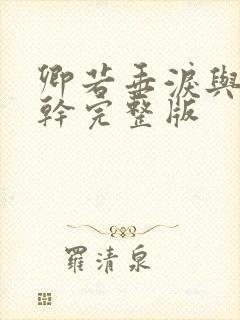 卿若垂淚與
幹完整版
羅清泉